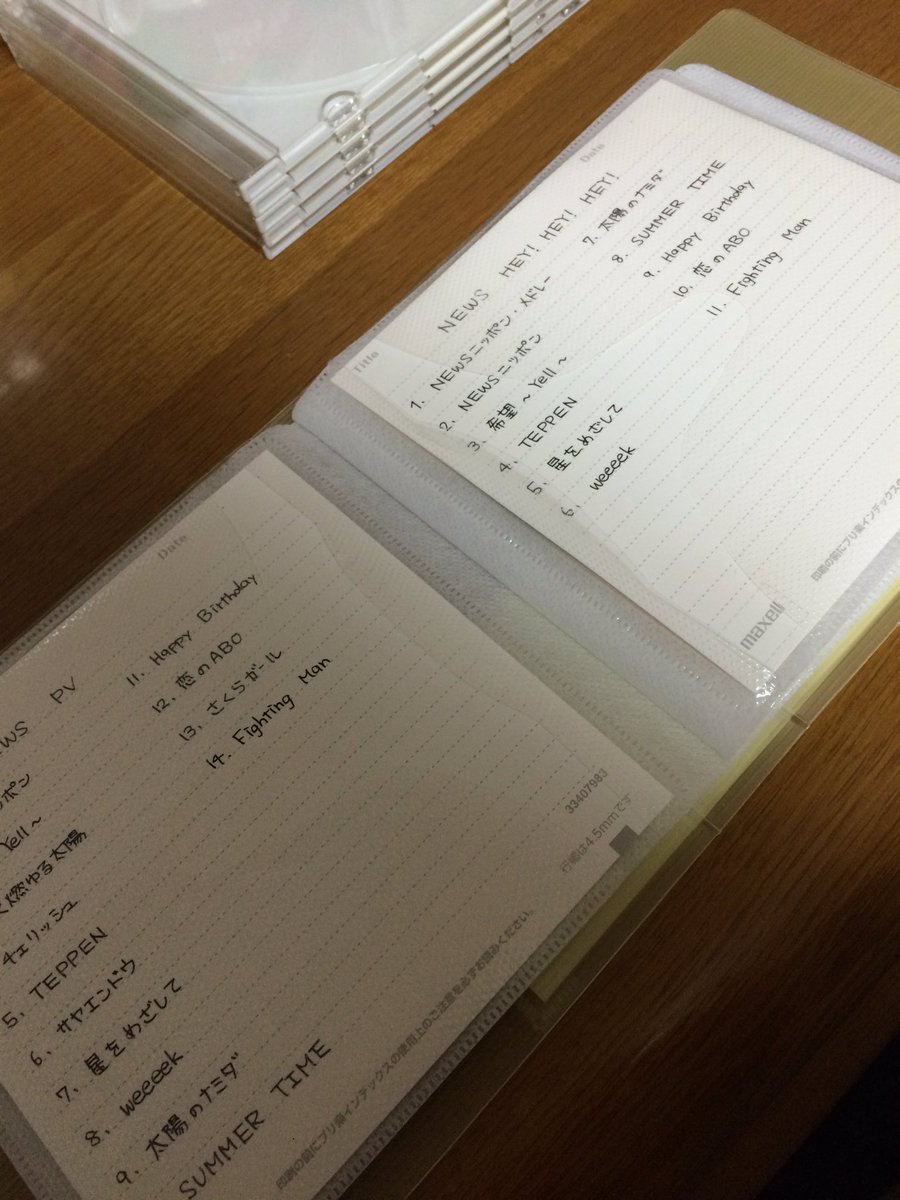 Date
Title
NEWS HEY! HEY! HEY!
1. NEWSニッポン・メドレー
2. NEWSニッポン
3. 希望~Yell~
4. TEPPEN
5. 星をめざして
6. weeeek
7. 太陽のナミダ
8. SUMMER TIME
9. Happy Birthday
10. 恋のABO
11. Fighting Man
maxell
印刷の前にプリ楽インデックスの
Date
PV
Yell~
燃ゆる太陽
チェリッシュ
5. TEPPEN
6. サヤエンドウ
7. 星をめざして
8. weeeek
9. 太陽のナミダ
SUMMER TIME
11. Happy Birthday
12. 恋のABO
13. さくらガール
14. Fighting Man
33407983
行幅は4.5mmです
印刷の前にプリ楽インデックスの使用上のご注意を必ずお読みください。